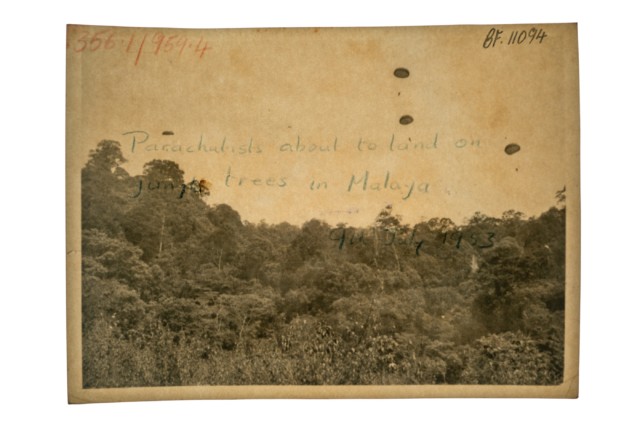 356.1/959.4
BF. 11094
Parachutists about to land on
jungle trees in Malaya.
9th July 1953